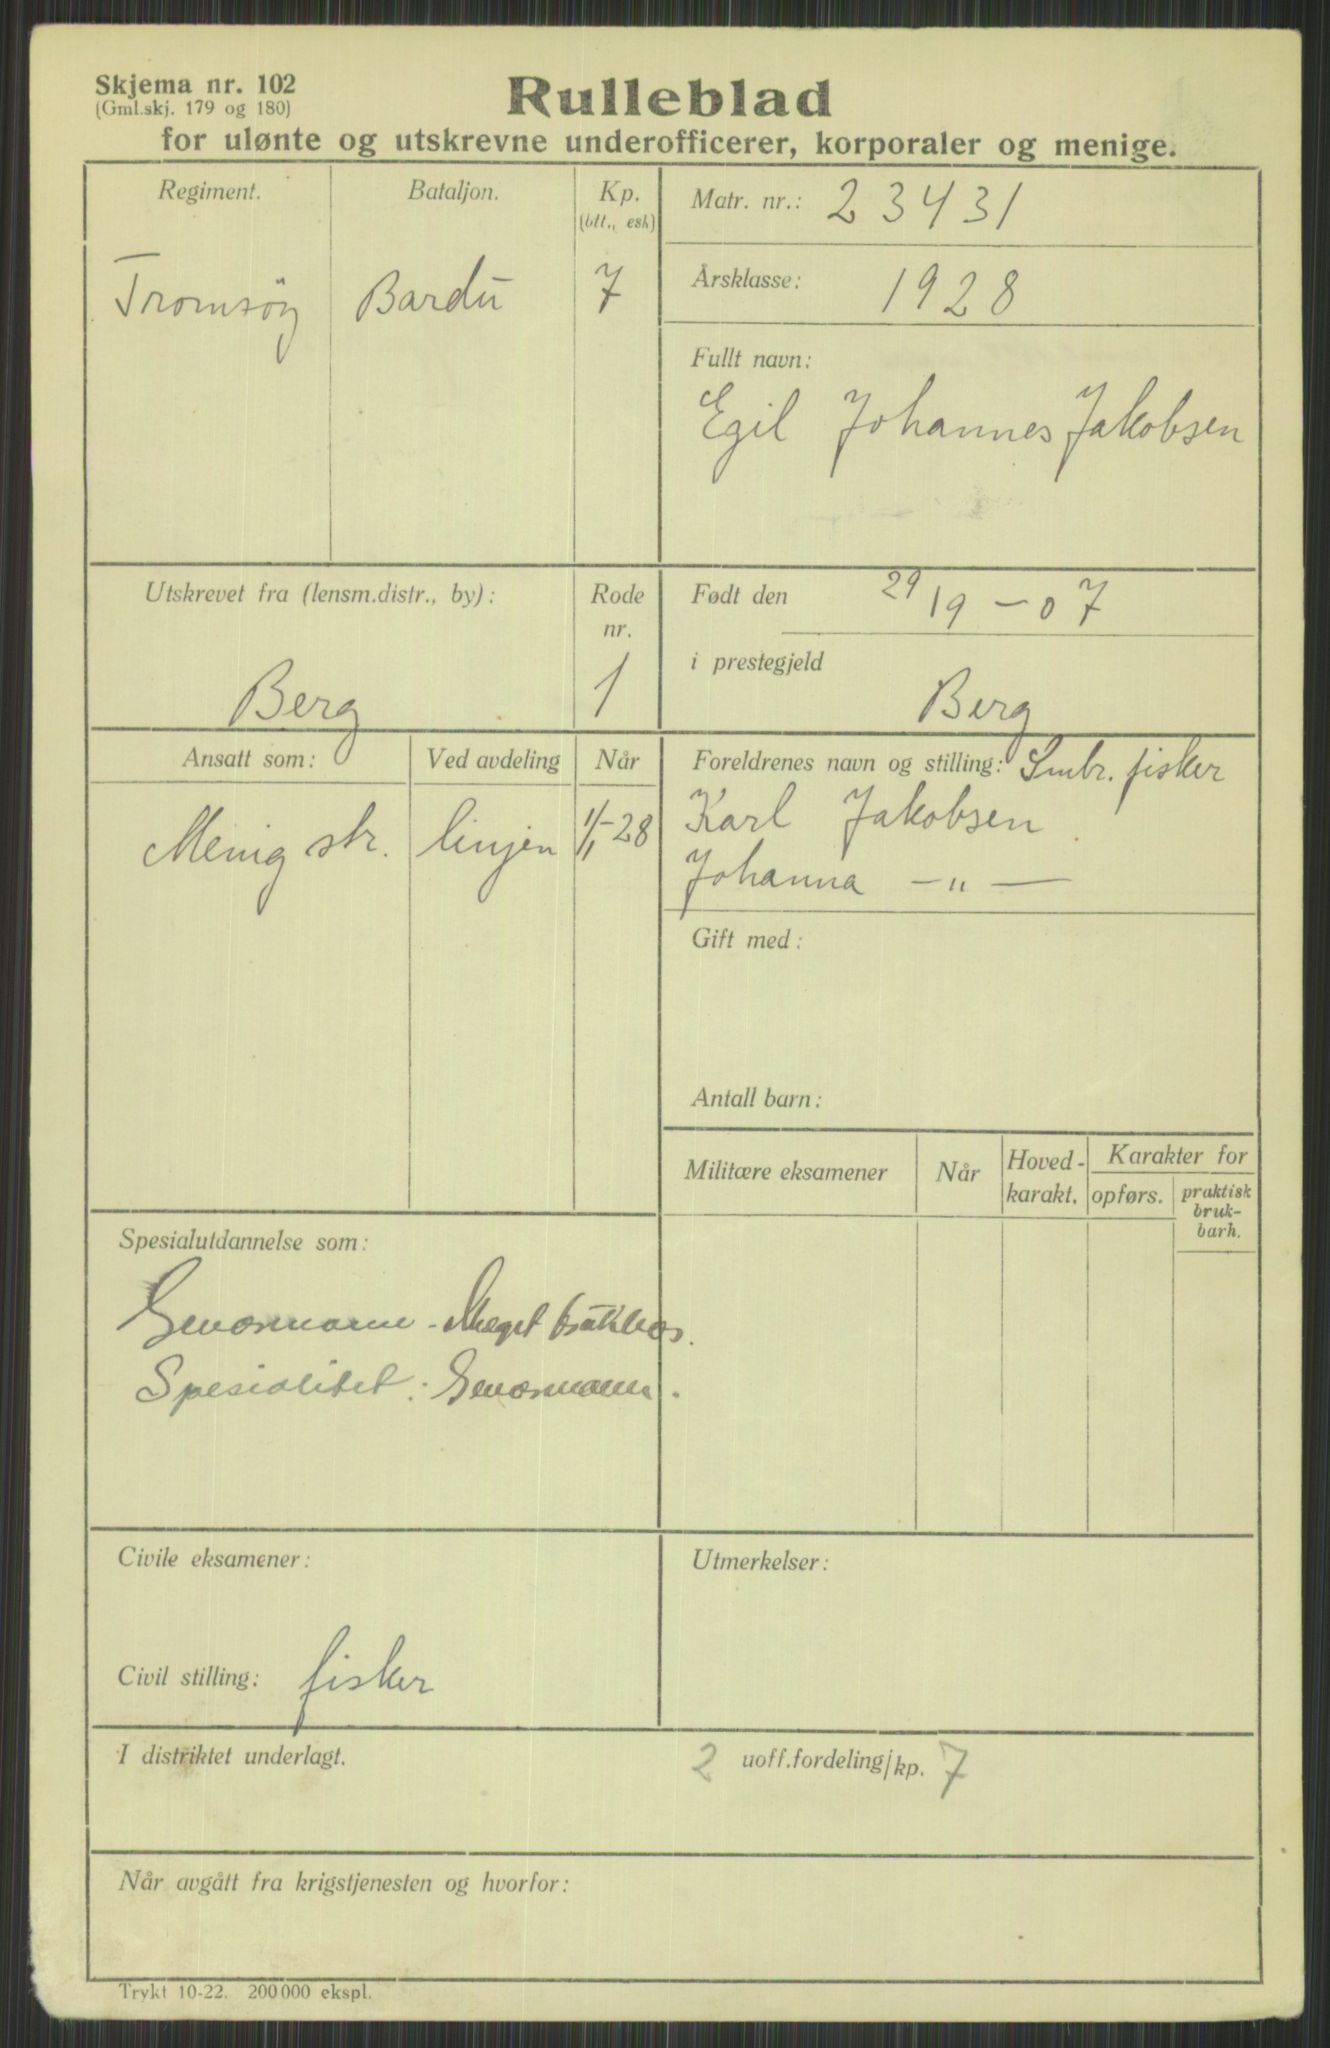 Skjema nr. 102
(Gml.skj. 179 og 180)
Rulleblad
for ulønte og utskrevne underofficerer, korporaler og menige.
Regiment.
Bataljon.
Kp.
(btt., esk)
Tromsøy
Bardu
7
Matr. nr.: 23431
Årsklasse: 1928
Fullt navn:
Egil Johannes Jakobsen
Utskrevet fra (lensm.distr., by):
Berg
Rode
nr.
1
Født den 29/9 - 07
i prestegjeld
Berg
Ansatt som:
Ved avdeling
Når
Menig str.
linjen
1/1-28
Foreldrenes navn og stilling: Smbr. fisker
Karl Jakobsen
Johanna -„-
Gift med:
Antall barn:
Militære eksamener
Når
Hoved-
karakt.
Karakter for
opførs.
praktisk
bruk-
barh.
Spesialutdannelse som:
Geværmann - Meget brukbar.
Spesialitet: Geværmann.
Civile eksamener:
Civil stilling: fisker
Utmerkelser:
I distriktet underlagt.
2 uoff.fordeling/kp. 7
Når avgått fra krigstjenesten og hvorfor:
Trykt 10-22. 200000 ekspl.